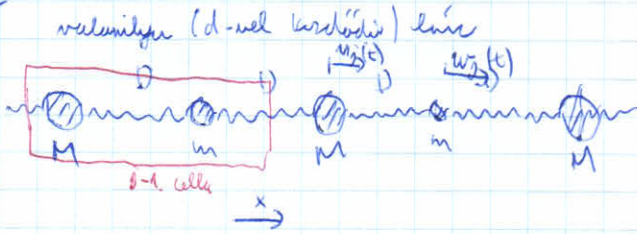 valamilyen (d-vel kezdődő) lánc
D D u_j(t) D w_j(t)
M m M m M
j-1. cella
x